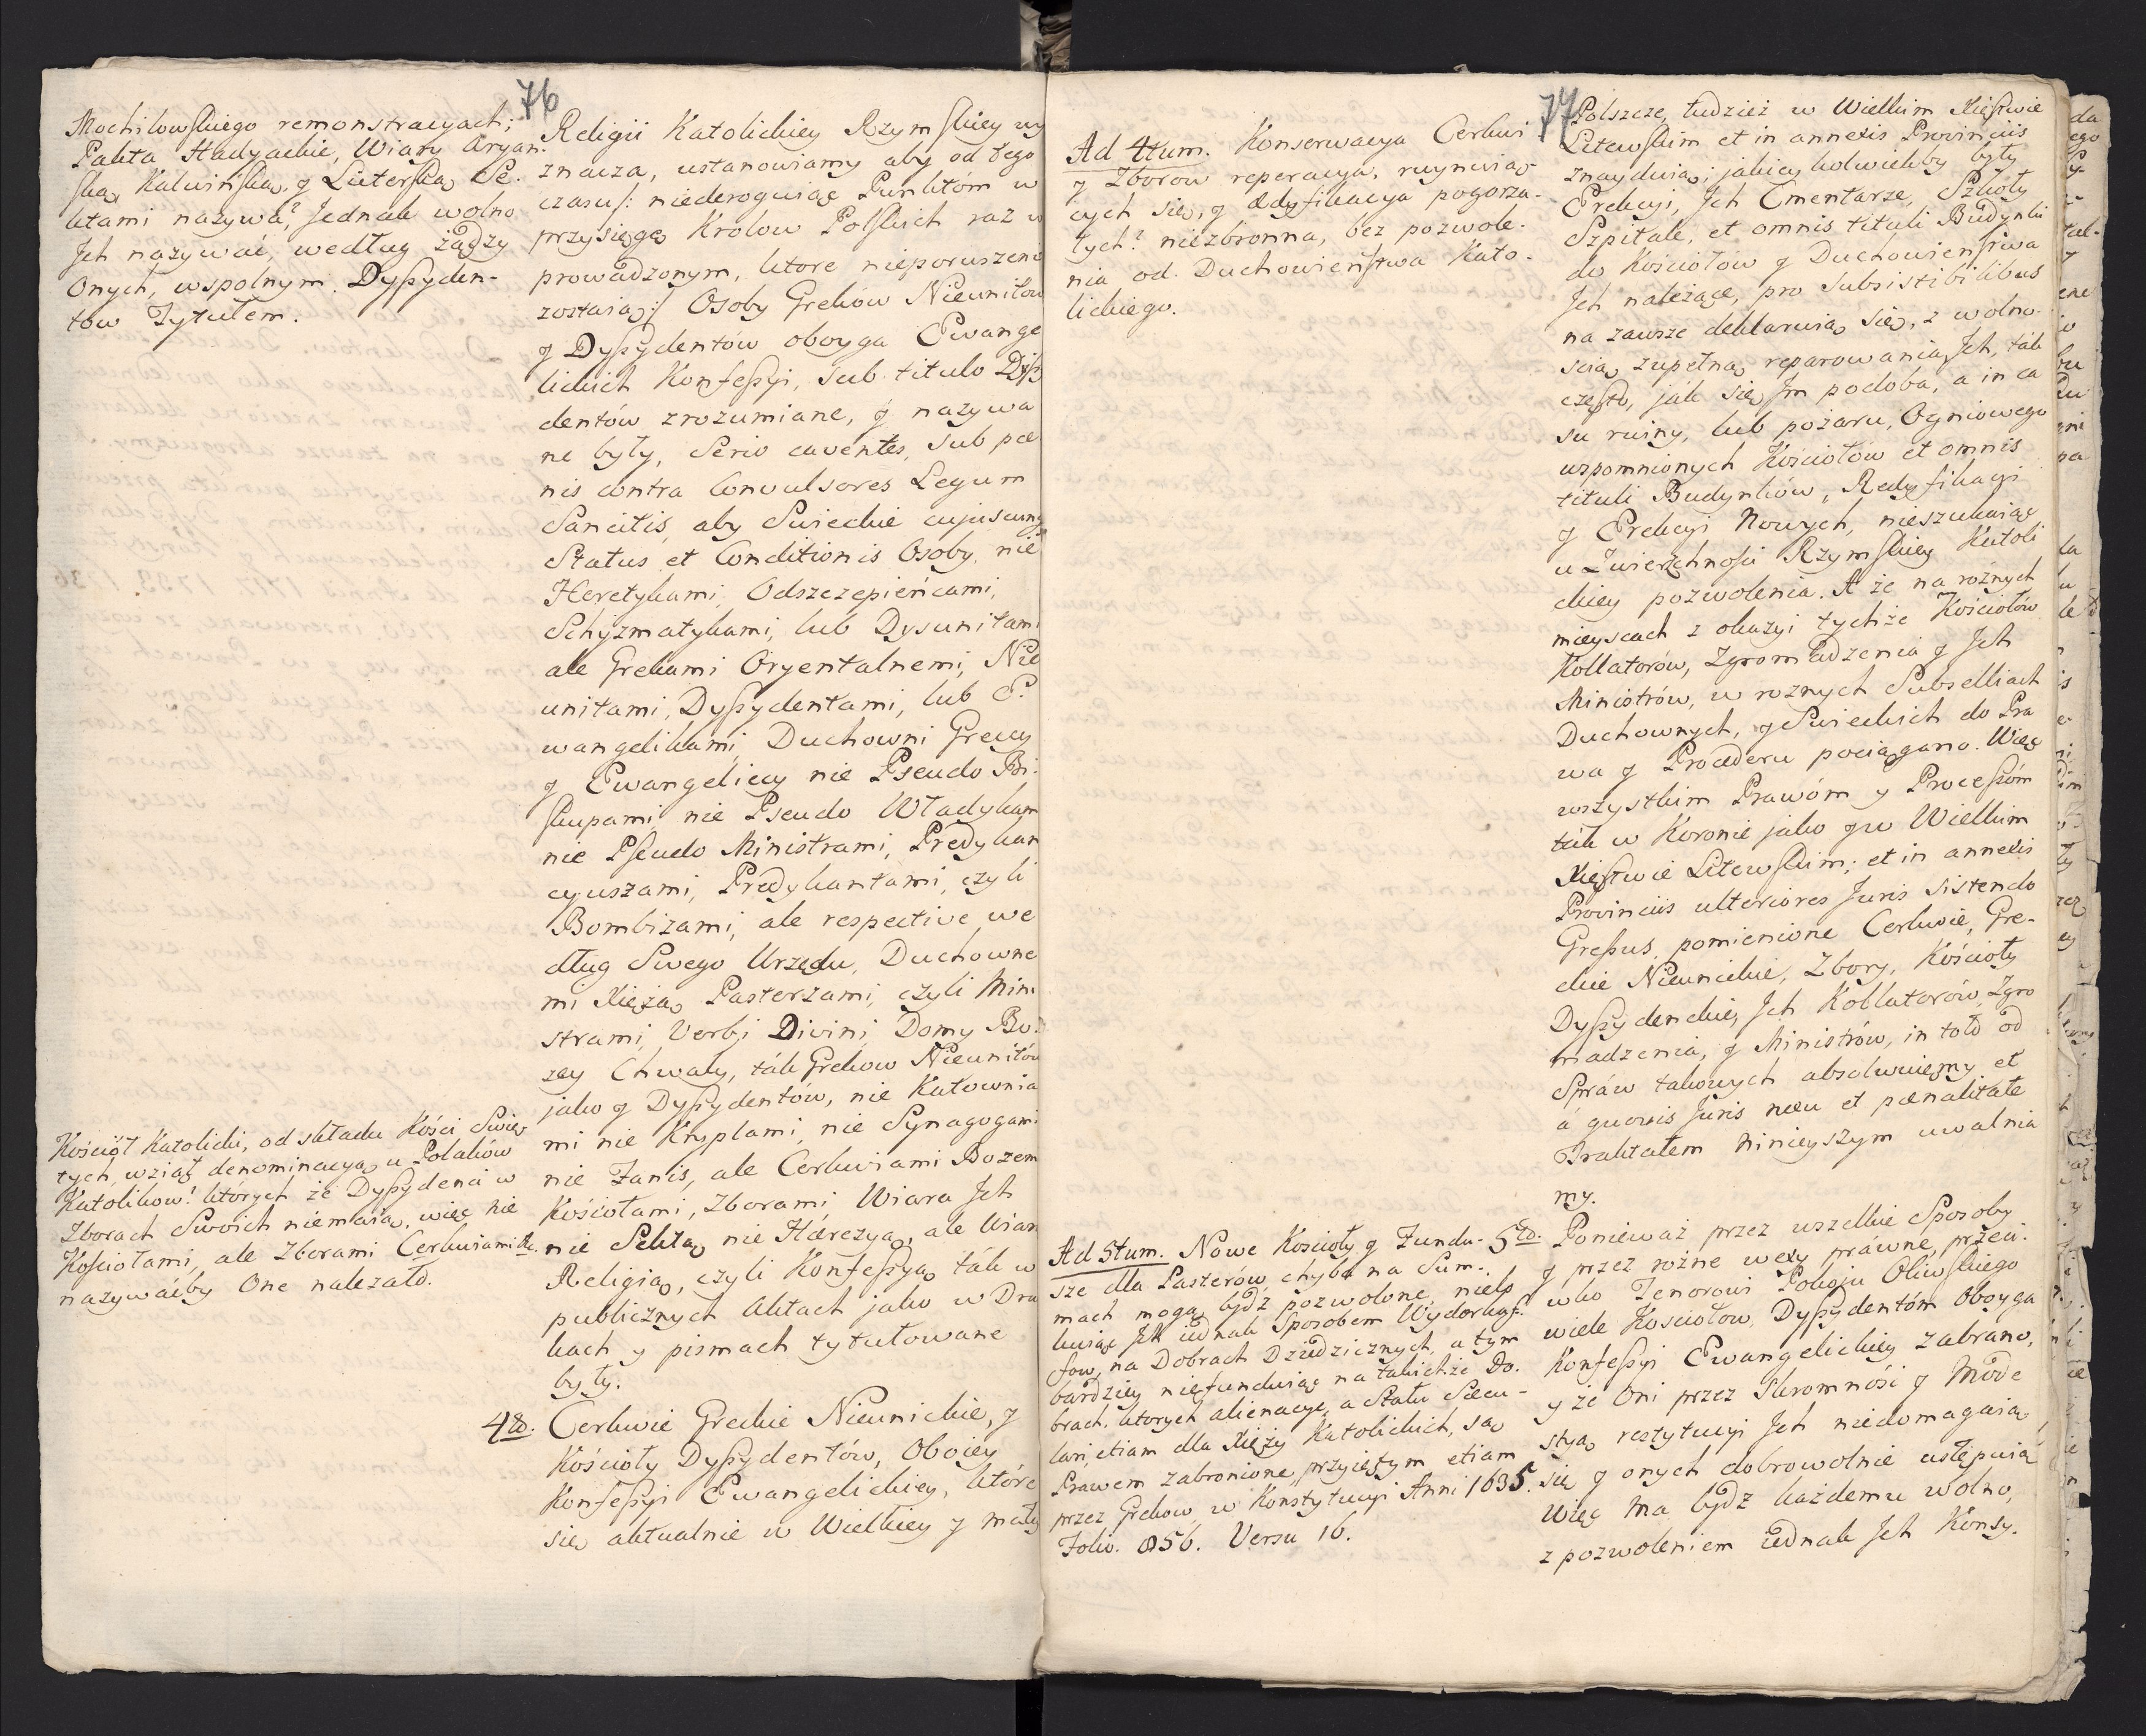 76
Mochilowskiego remonstracyach;
Pakta Hadyackie, Wiary Aryan-
ską, Kalwińską, y Luterską Se-
ktami nazywa? Jednak wolno
Jch nazywać, według żądzy
Onych, wspolnym Dyssyden-
tow Tytułem.
Kościół Katolicki, od składu Kości Swię-
tych, wziął denominacyą u Polaków
Katolikow! których że Dyssydenci w
Zborach Swoich niemaią, więc nie
Kościołami, ale Zborami Cerkwiami &c.
nazywaćby One należało.
Religii Katolickiey Rzymskiey wy
znacza, ustanowiamy aby od tego
czasu /: niederoguiąc Punktóm w
przysięgę Krolow Polskich raz w
prowadzonym, ktore nieporuszenie
zostaią :/ Osoby Greków Nieunitow
y Dyssydentów oboyga Ewange
lickich Konfessyi, sub titulo Dyssy
dentów zrozumiane, y nazywa
ne były, Serio caventes, sub pæ
nis contra Convulsores Legum
Sancitis, aby Swieckie cujuscunq
Status et Conditionis Osoby, nie
Heretykami, Odszczepieńcami,
Schyzmatykami, lub Dysunitami
ale Grekami Oryentalnemi, Nie
unitami, Dyssydentami, lub E-
wangelikami, Duchowni Grecy
y Ewangelicy nie Pseudo Bi-
skupami, nie Pseudo Władykam
nie Pseudo Ministrami, Predykan
cyuszami, Predykantami, czyli
Bombizami, ale respective we
dług Swego Urzędu, Duchowne
mi Xiężą, Pasterzami, czyli Mini
strami, Verbi Divini, Domy Bo-
zey Chwały, ták Grekow Nieunitów
jako y Dyssydentów, nie Katownia
mi nie Kryplami, nie Synagogami
nie Fanis, ale Cerkwiami Bozem
Kościołami, Zborami, Wiara Jch
nie Sektą, nie Hærezyą, ale Wiar
Religią, czyli Konfessyą, ták w
publicznych Aktach jako w Dru
kach y pismach tytułowane
były.
4to. Cerkwie Greckie Nieunickie, y
Kościoły Dyssydentów, Oboiey
Konfessyi Ewangelickiey, które
się aktualnie w Wielkiey y małey
77
Ad 4tum. Konserwacya Cerkwi
y Zborow reperacya, ruynuią-
cych się, y Ædyfikacya pogorza-
łych? niezbronna, bez pozwole-
nia, od Duchowieństwa Kato-
lickiego.
Ad 5tum. Nowe Kościoły y Fundu-
sze dla Pasterów, chyba na Sum-
mach mogą bydź pozwolone, nielo
kuiąc Jch iednak Sposobem Wyderkaf-
fow, na Dobrach Dziedzicznych, a tym
bardziey niefunduiąc na takichże Do-
brach, ktorych alienacye, a Statu Sæcu-
lari, etiam dla Xięży Katolickich, są
Prawem zabronione, przyiętym etiam
przez Grekow, w Konstytucyi Anni 1635.
Folio. 856. Versu 16.
Polszcze, tudzież w Wielkim Xięstwie
Litewskim et in annexis Provinciis
znayduią; jakiey kolwiekby były
Erekcyi, Jch Cmentarze, Szkoły
Szpitale, et omnis tituli Budynki
do Kościołow y Duchowieństwa
Jch należące, pro Subsistibilibus
na zawsze deklaruią się, z wolno-
scią zupełną reparowania Jch, ták
często, ják się Jm podoba, a in ca
su ruiny, lub pożaru, Ogniowego
wspomnionych Kościołów et omnis
tituli Budynków, Reædyfikacyi
y Erekcyi Nowych, nieszukaiąc
u Zwierzchności Rzymskiey Katoli
ckiey pozwolenia. A że na rożnych
mieyscach z okazyi tychże Kościołów
Kollatorów, Zgromadzenia y Jch
Ministrów, w roznych Subselliach
Duchownych, y Swieckich do Pra
wa y Procederu pociągano. Więc
wszystkim Prawóm y Processóm
ták w Koronie jako y w Wielkim
Xięstwie Litewskim; et in annexis
Provinciis ulteriores Juris sistendo
Gressus, pomienione Cerkwie, Gre-
ckie Nieunickie, Zbory, Kościoły
Dyssydenckie, Jch Kollatorów, Zgro
madzenia, y Ministrów, in toto od
Spraw takowych absolwuięmy et
á quovis Juris nexu et pænalitate
Traktatem Ninieyszym uwalnia
my.
5to. Ponieważ przez wszelkie Sposoby
y przez rożne wexy práwne, przeci-
wko Tenorowi Pokoju Oliwskiego
wiele Kościołow, Dyssydentóm Oboyga
Konfessyi Ewangelickiey zabrano,
y że Oni przez Skromność y Mode
styą restytucyi Jch niedomagaią
się y onych dobrowolnie ustępuią
Więc ma bydź każdemu wolno,
z pozwoleniem iednak Jch Konsy-